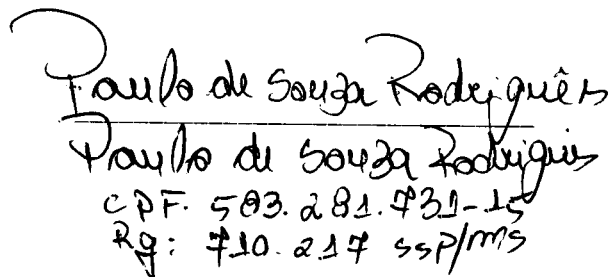 Paulo de Souza Rodriguês
Paulo de Souza Rodrigues
CPF. 583.281.731-15
Rg: 710.217 SSP/MS